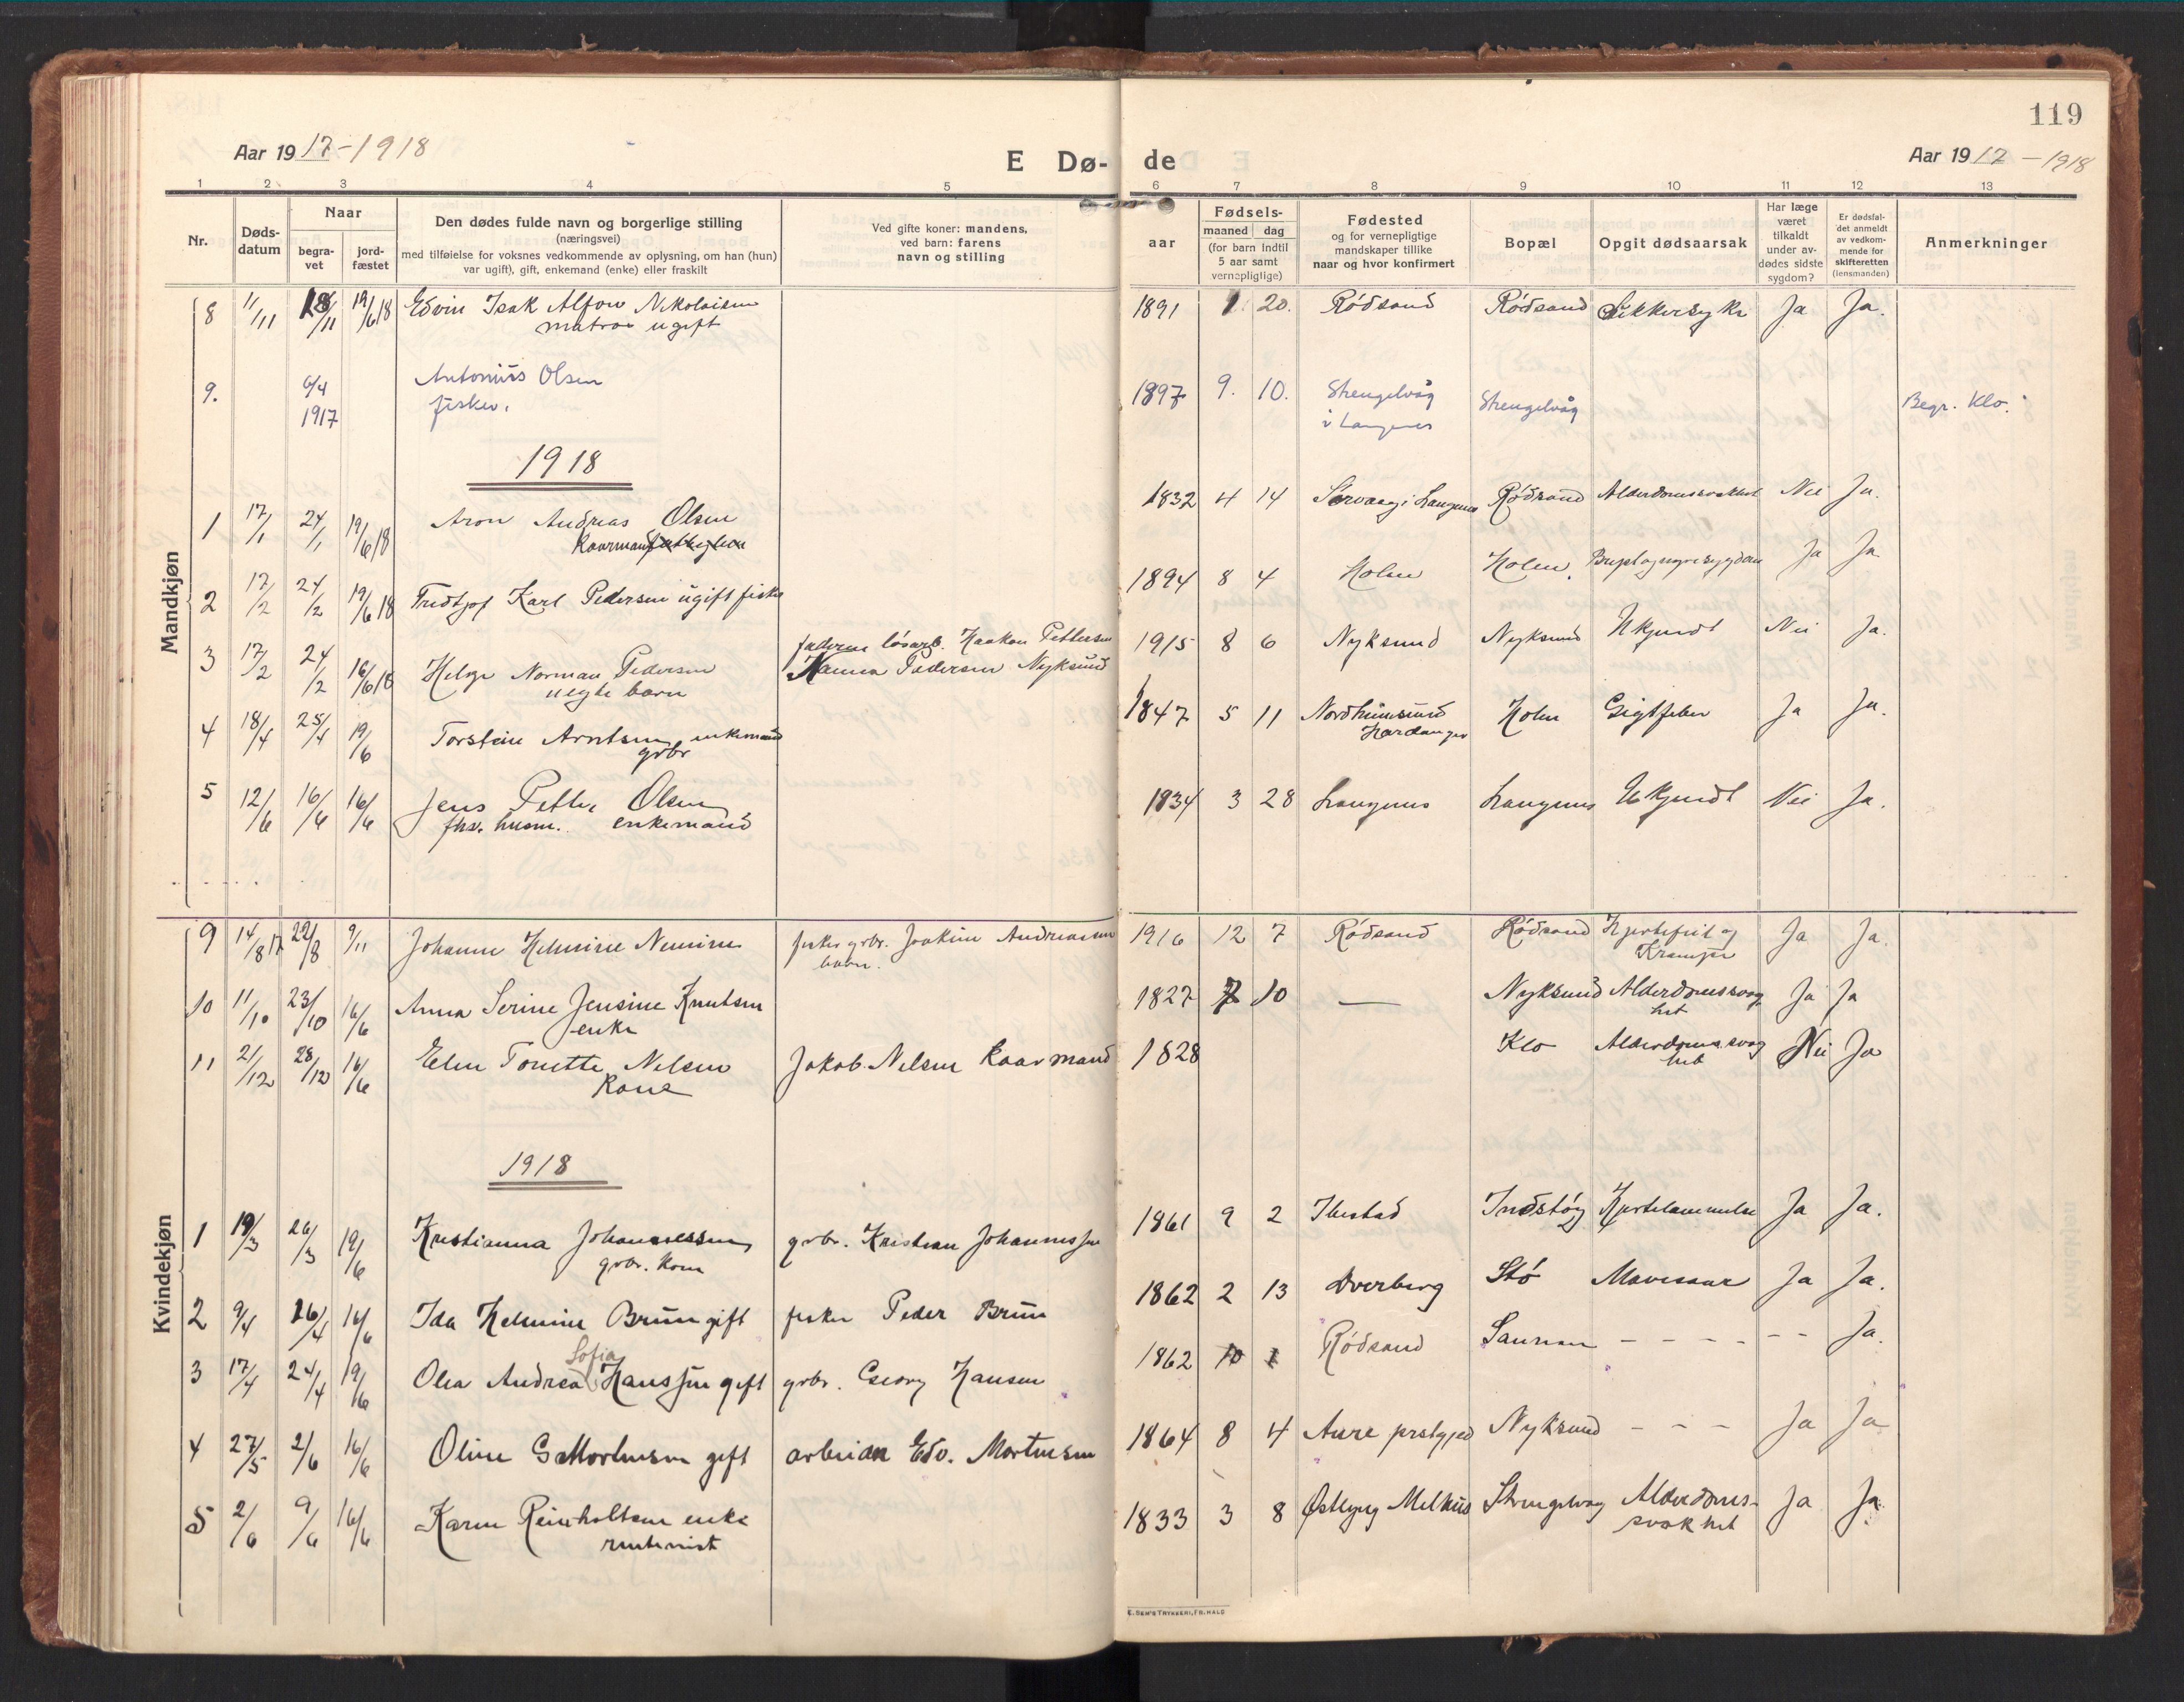 119
Aar 1917-1918
E Dø-de
Aar 1917-1918
1 2 3 4 5 6 7 8 9 10 11 12 13
Nr.
Døds-
datum
Naar
begra-
vet
jord-
fæstet
Den dødes fulde navn og borgerlige stilling
(næringsvei)
med tilføielse for voksnes vedkommende av oplysning, om han (hun)
var ugift), gift, enkemand (enke) eller fraskilt
Ved gifte koner: mandens,
ved barn: farens
navn og stilling
aar
Fødsels-
maaned dag
(for barn indtil
5 aar samt
vernepligtige)
Fødested
og for vernepligtige
mandskaper tillike
naar og hvor konfirmert
Bopæl
Opgit dødsaarsak
Har læge
været
tilkaldt
under av-
dødes sidste
sygdom?
Er dødsfal-
det anmeldt
av vedkom-
mende for
skifteretten
(lensmanden)
Anmerkninger
Mandkjøn
8 11/11 18/11 19/6 18 Edvin Isak Alfon Nikolaisen 1891 1 20. Rödsand Rödsand Sukkersyke Ja Ja.
matros ugift
9. 6/4 Antonius Olsen 1897 9. 10. Strengelvåg Strengelvåg Begr. Klo.
1917 fisker. i Langenes
1918
1 17/1 24/1 19/6 18 Aron Andreas Olsen 1832 4 14 Langenes Rödsand Alderdomssvakhet Nei Ja.
Kaarmand
2 17/2 24/2 19/6 18 Fridtjof Karl Pedersen ugift fisker 1894 8 4 Holm Holm. Ja Ja
3 17/2 24/2 16/6 18 Helge Norman Pedersen faderen løsarb. Haakon Pettersen 1915 8 6 Nyksund Nyksund Ukjendt Nei Ja.
uegte barn Hanna Pedersen Nyksund
4 18/4 25/4 19/6 Torstein Arntsen enkemand 1847 5 11 Nordheimsund Holm Gigtfeber Ja Ja.
grbr Hardanger
5 12/6 16/6 16/6 Jens Petter Olsen 1834 3 28 Langenes Langenes Ukjendt Nei Ja.
fhv. husm. enkemand
Kvindekjøn
9 14/8 17 22/8 9/11 Johanne Helmine Nemine fisker grbr. Joakim Andreassen 1916 12 7 Rödsand Rödsand Hjertefeil og Ja Ja.
barn. Kramper
10 11/10 23/10 16/6 Anna Serine Jensine Knutsen 1827 7 10 — Nyksund Alderdomssvag Ja Ja
enke het
11 2/12 28/12 16/6 Elen Tonette Nelsen Jakob Nelsen Kaarmand 1828 Klo Alderdomssvag Nei Ja
Kone het
1918
1 19/3 26/3 19/6 Kristianna Johannessen grbr. Kristian Johannessen 1861 9 2 Ibestad Indstøy Hjertelammelse Ja Ja.
grbr. kone
2 9/4 16/4 16/6 Ida Helmine Brun gift fisker Peder Brun 1862 2 13 Dverberg Stö Mavesaar Ja Ja.
3 17/4 24/4 19/6 Olea Andrea Sofia Hanssen gift grbr. Georg Hansen 1862 10 1 Rödsand Saunan - - - - - - Ja.
4 27/5 2/6 16/6 Oline G Mortensen gift arbeider Edv. Mortensen 1864 8 4 Aure prstgjed Nyksund - - - Ja Ja
5 2/6 9/6 16/6 Karen Reinholtsen enke 1833 3 8 Østbyg Melhus Strengelvag Alderdoms- Ja Ja.
rentenist svakhet
E. SEM'S TRYKKERI, FR.HALD